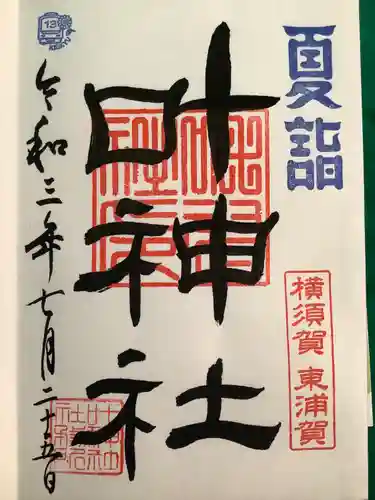 夏詣
横須賀 東浦賀
叶神社
令和三年七月二十五日
13